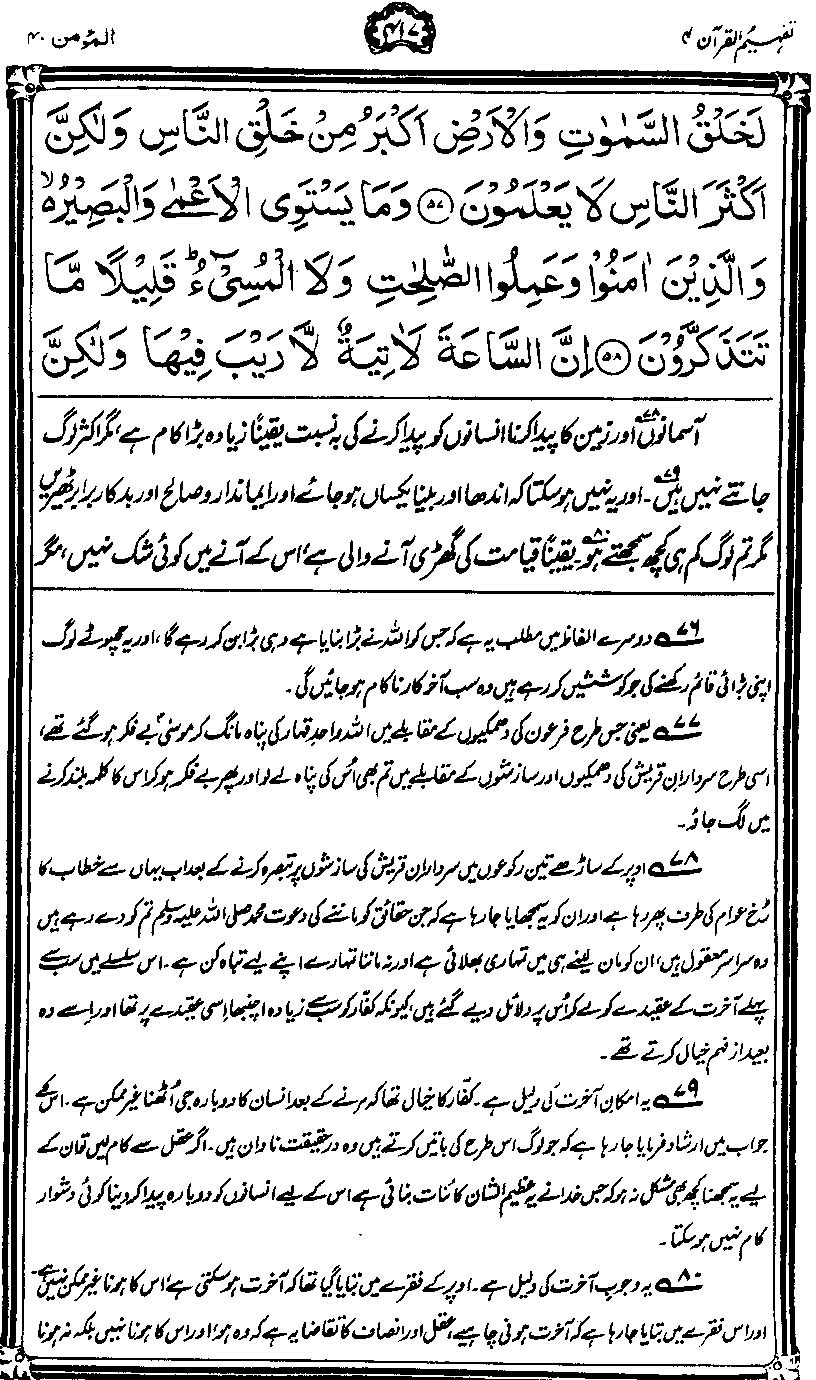 تفہیم القرآن ۴
۴۱۷
المؤمن ۴۰
لَخَلْقُ السَّمٰوٰتِ وَالْاَرْضِ اَكْبَرُ مِنْ خَلْقِ النَّاسِ وَلٰكِنَّ
اَكْثَرَ النَّاسِ لَا يَعْلَمُوْنَ ۵۷ وَمَا يَسْتَوِى الْاَعْمٰى وَالْبَصِيْرُ ەۙ
وَالَّذِيْنَ اٰمَنُوْا وَعَمِلُوا الصّٰلِحٰتِ وَلَا الْمُسِىْٓءُ ؕ قَلِيْلًا مَّا
تَتَذَكَّرُوْنَ ۵۸ اِنَّ السَّاعَةَ لَاٰتِيَةٌ لَّا رَيْبَ فِيْهَا وَلٰكِنَّ
آسمانوں۷۸ اور زمین کا پیدا کرنا انسانوں کو پیدا کرنے کی بہ نسبت یقیناً زیادہ بڑا کام ہے، مگر اکثر لوگ
جانتے نہیں ہیں۷۹۔ اور یہ نہیں ہو سکتا کہ اندھا اور بینا یکساں ہو جائے اور ایماندار و صالح اور بدکار برابر ٹھیریں
مگر تم لوگ کم ہی کچھ سمجھتے ہو۸۰۔ یقیناً قیامت کی گھڑی آنے والی ہے، اس کے آنے میں کوئی شک نہیں، مگر
۷۶ دوسرے الفاظ میں مطلب یہ ہے کہ جس کو اللہ نے بڑا بنایا ہے وہی بڑا بن کر رہے گا، اور یہ چھوٹے لوگ
اپنی بڑائی قائم رکھنے کی جو کوششیں کر رہے ہیں وہ سب آخر کار ناکام ہو جائیں گی۔
۷۷ یعنی جس طرح فرعون کی دھمکیوں کے مقابلے میں اللہ واحد قہار کی پناہ مانگ کر موسیٰؑ بے فکر ہو گئے تھے،
اسی طرح سردارانِ قریش کی دھمکیوں اور سازشوں کے مقابلے میں تم بھی اُس کی پناہ لے لو اور پھر بے فکر ہو کر اس کا کلمہ بلند کرنے
میں لگ جاؤ۔
۷۸ اوپر کے ساڑھے تین رکوعوں میں سردارانِ قریش کی سازشوں پر تبصرہ کرنے کے بعد اب یہاں سے خطاب کا
رُخ عوام کی طرف پھر رہا ہے اور ان کو یہ سمجھایا جا رہا ہے کہ جن حقائق کو ماننے کی دعوت محمد صلی اللہ علیہ وسلم تم کو دے رہے ہیں
وہ سراسر معقول ہیں، ان کو مان لینے ہی میں تمہاری بھلائی ہے اور نہ ماننا تمہارے اپنے لیے تباہ کن ہے۔ اس سلسلے میں سب سے
پہلے آخرت کے عقیدے کو لے کر اُس پر دلائل دیے گئے ہیں، کیونکہ کفار کو سب سے زیادہ اچنبھا اِسی عقیدے پر تھا اور اِسے وہ
بعید از فہم خیال کرتے تھے۔
۷۹ یہ امکانِ آخرت کی دلیل ہے۔ کفّار کا خیال تھا کہ مرنے کے بعد انسان کا دوبارہ جی اُٹھنا غیر ممکن ہے۔ اس کے
جواب میں ارشاد فرمایا جا رہا ہے کہ جو لوگ اس طرح کی باتیں کرتے ہیں وہ درحقیقت نادان ہیں۔ اگر عقل سے کام لیں تو ان کے
لیے یہ سمجھنا کچھ بھی مشکل نہ ہو کہ جس خدا نے یہ عظیم الشان کائنات بنائی ہے اس کے لیے انسانوں کو دوبارہ پیدا کر دینا کوئی دشوار
کام نہیں ہو سکتا۔
۸۰ یہ وجوبِ آخرت کی دلیل ہے۔ اوپر کے فقرے میں بتایا گیا تھا کہ آخرت ہو سکتی ہے، اس کا ہونا غیر ممکن نہیں ہے۔
اور اس فقرے میں بتایا جا رہا ہے کہ آخرت ہونی چاہیے، عقل اور انصاف کا تقاضا یہ ہے کہ وہ ہو، اور اس کا ہونا نہیں بلکہ نہ ہونا